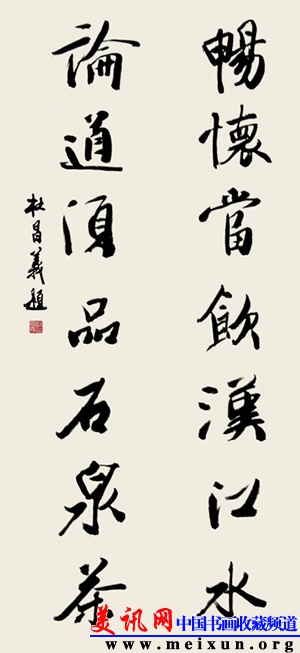 暢懷當飲漢江水
論道須品石泉茶
杜昌義題
美讯网 中国书画收藏频道
www.meixun.org